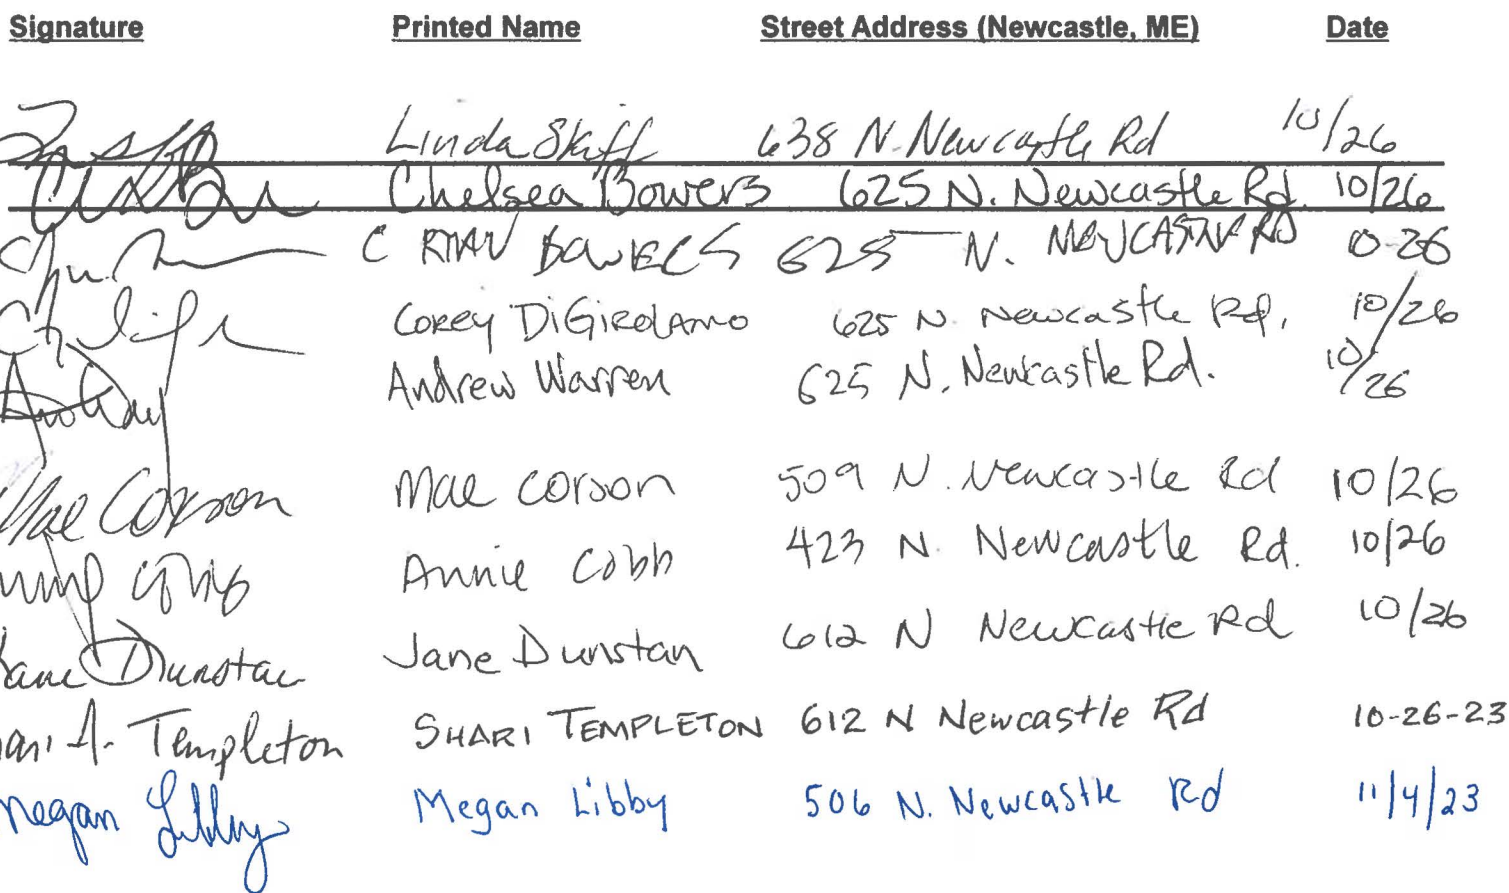 Signature Printed Name Street Address (Newcastle, ME) Date
Linda Skiff 638 N. Newcastle Rd 10/26
Chelsea Bowers 625 N. Newcastle Rd. 10/26
C RYAN BOWERS 625 N. NEWCASTLE RD 10-26
Corey DiGirolamo 625 N. Newcastle Rd. 10/26
Andrew Warren 625 N. Newcastle Rd. 10/26
Mae Corson Mae Corson 509 N. Newcastle Rd 10/26
Annie Cobb 423 N. Newcastle Rd. 10/26
Jane Dunstan Jane Dunstan 612 N Newcastle Rd 10/26
A. Templeton SHARI TEMPLETON 612 N Newcastle Rd 10-26-23
Megan Libby Megan Libby 506 N. Newcastle Rd 11/4/23